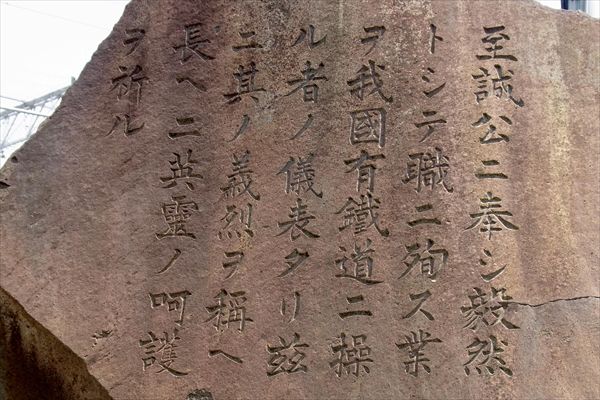 至誠公ニ奉シ毅然
トシテ職ニ殉ス業
ヲ我國有鐵道ニ操
ル者ノ儀表タリ玆
ニ其ノ義烈ヲ稱ヘ
長ヘニ英靈ノ呵護
ヲ祈ル